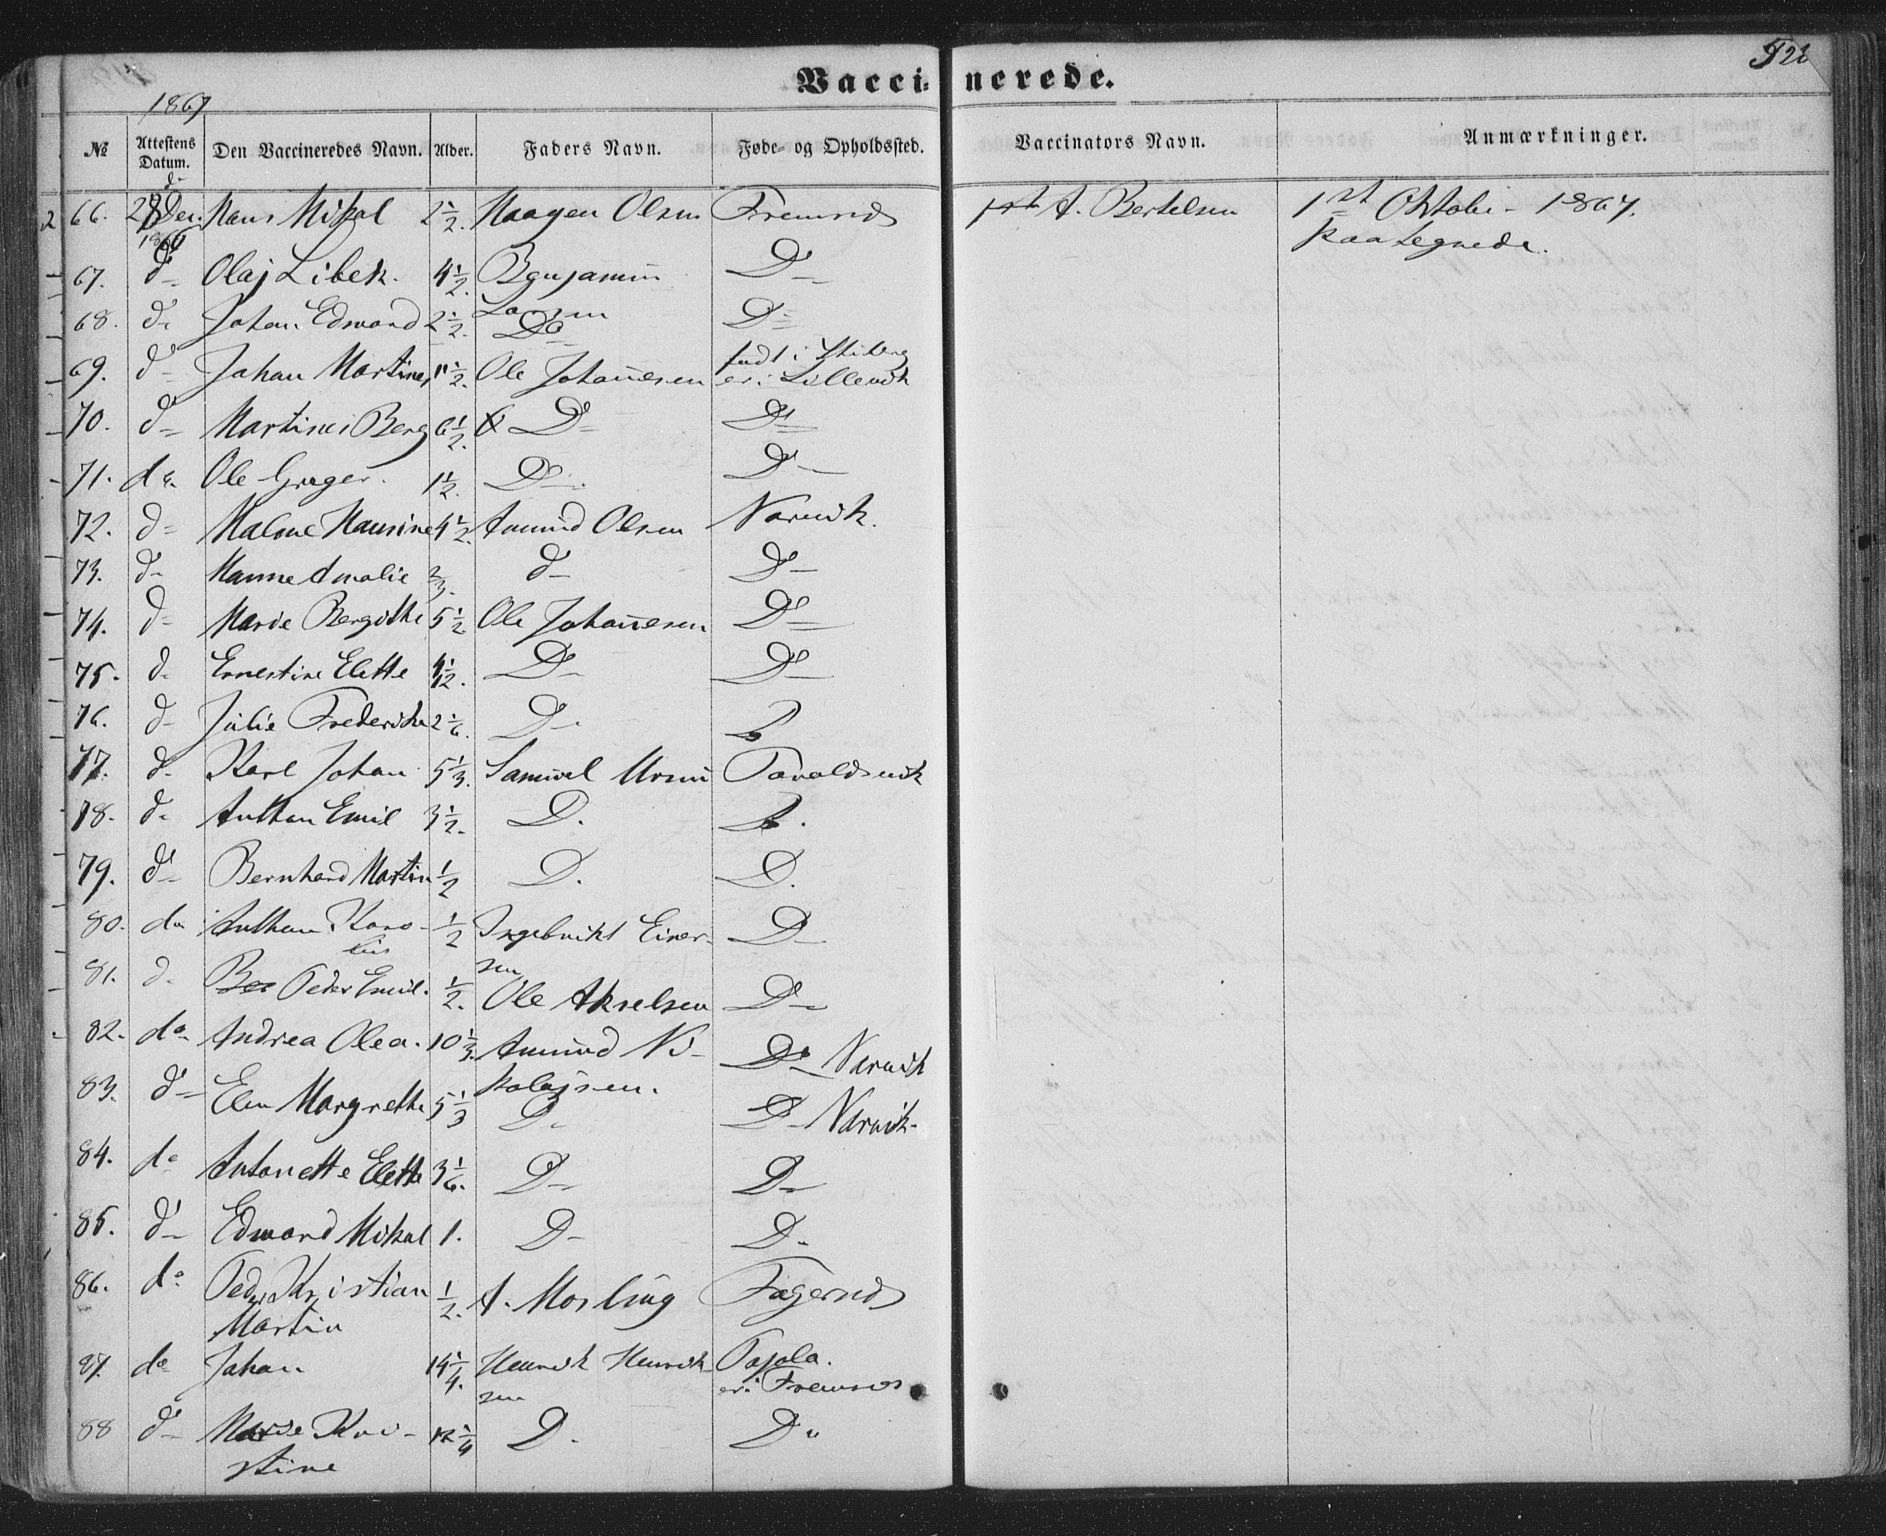 Vaccinerede.
522
1867
№ Attestens Datum. Den Vaccineredes Navn. Alder. Faders Navn. Føde- og Opholdssted. Vaccinators Navn. Anmærkninger.
66. Hans Mikal 2 1/2. Haagen Olsen Fremnes A. Bertelsen 1st Oktobr 1867.
paategnede.
67. d- Olaj Libek. 4 1/2. Benjamin D-
Larsen
68. d- Johan Edward 2 1/2. Do D-
69. d- Johan Martines 11 1/2. Ole Johannesen født i
er i Lillevik
70. d- Martines Berg 6 1/2. D- D-
71. do. Ole Greger. 1 1/2. D-. D-
72. d- Malene Hansine 4 1/2. Amund Olsen Narvik.
73. d- Hanne Amalie 2/3. d- D-
74. d- Marie Bergithe 5 1/2 Ole Johannesen D-
75. d. Ernestine Elette 4 1/2. D- D-
76. d- Julie Frederikke 2 1/6. D. D
77. d- Karl Johan 5 1/3. Samuel Ursin Taraldsvik
78. d. Anthon Emil 3 1/2. D. D.
79. d- Bernhard Martin 1/2 D. D.
80. do Anthon Karo- 1/2 Ingebrikt Einer- D-
lius sen
81. d. Ber Peder Emil. 1/2. Ole Akselsen D-
82. do Andrea Olea. 10 1/3. Amund Ni- D- Narvik
kolajsen.
83. d- Elen Margrethe 5 1/3 D- D- Narvik-
84. do Antonette Elette 3 1/6. D- D-
85. d- Edward Mikal 1. D- D-
86. do Peder Kristian 1/2. A. Mosling Fagernes
Martin
87. do Johan 14 1/4. Henrik Henrik- Pajala.
sen er i Fremnes
88 d- Marie Kri- 12 1/4 D. D"
stine